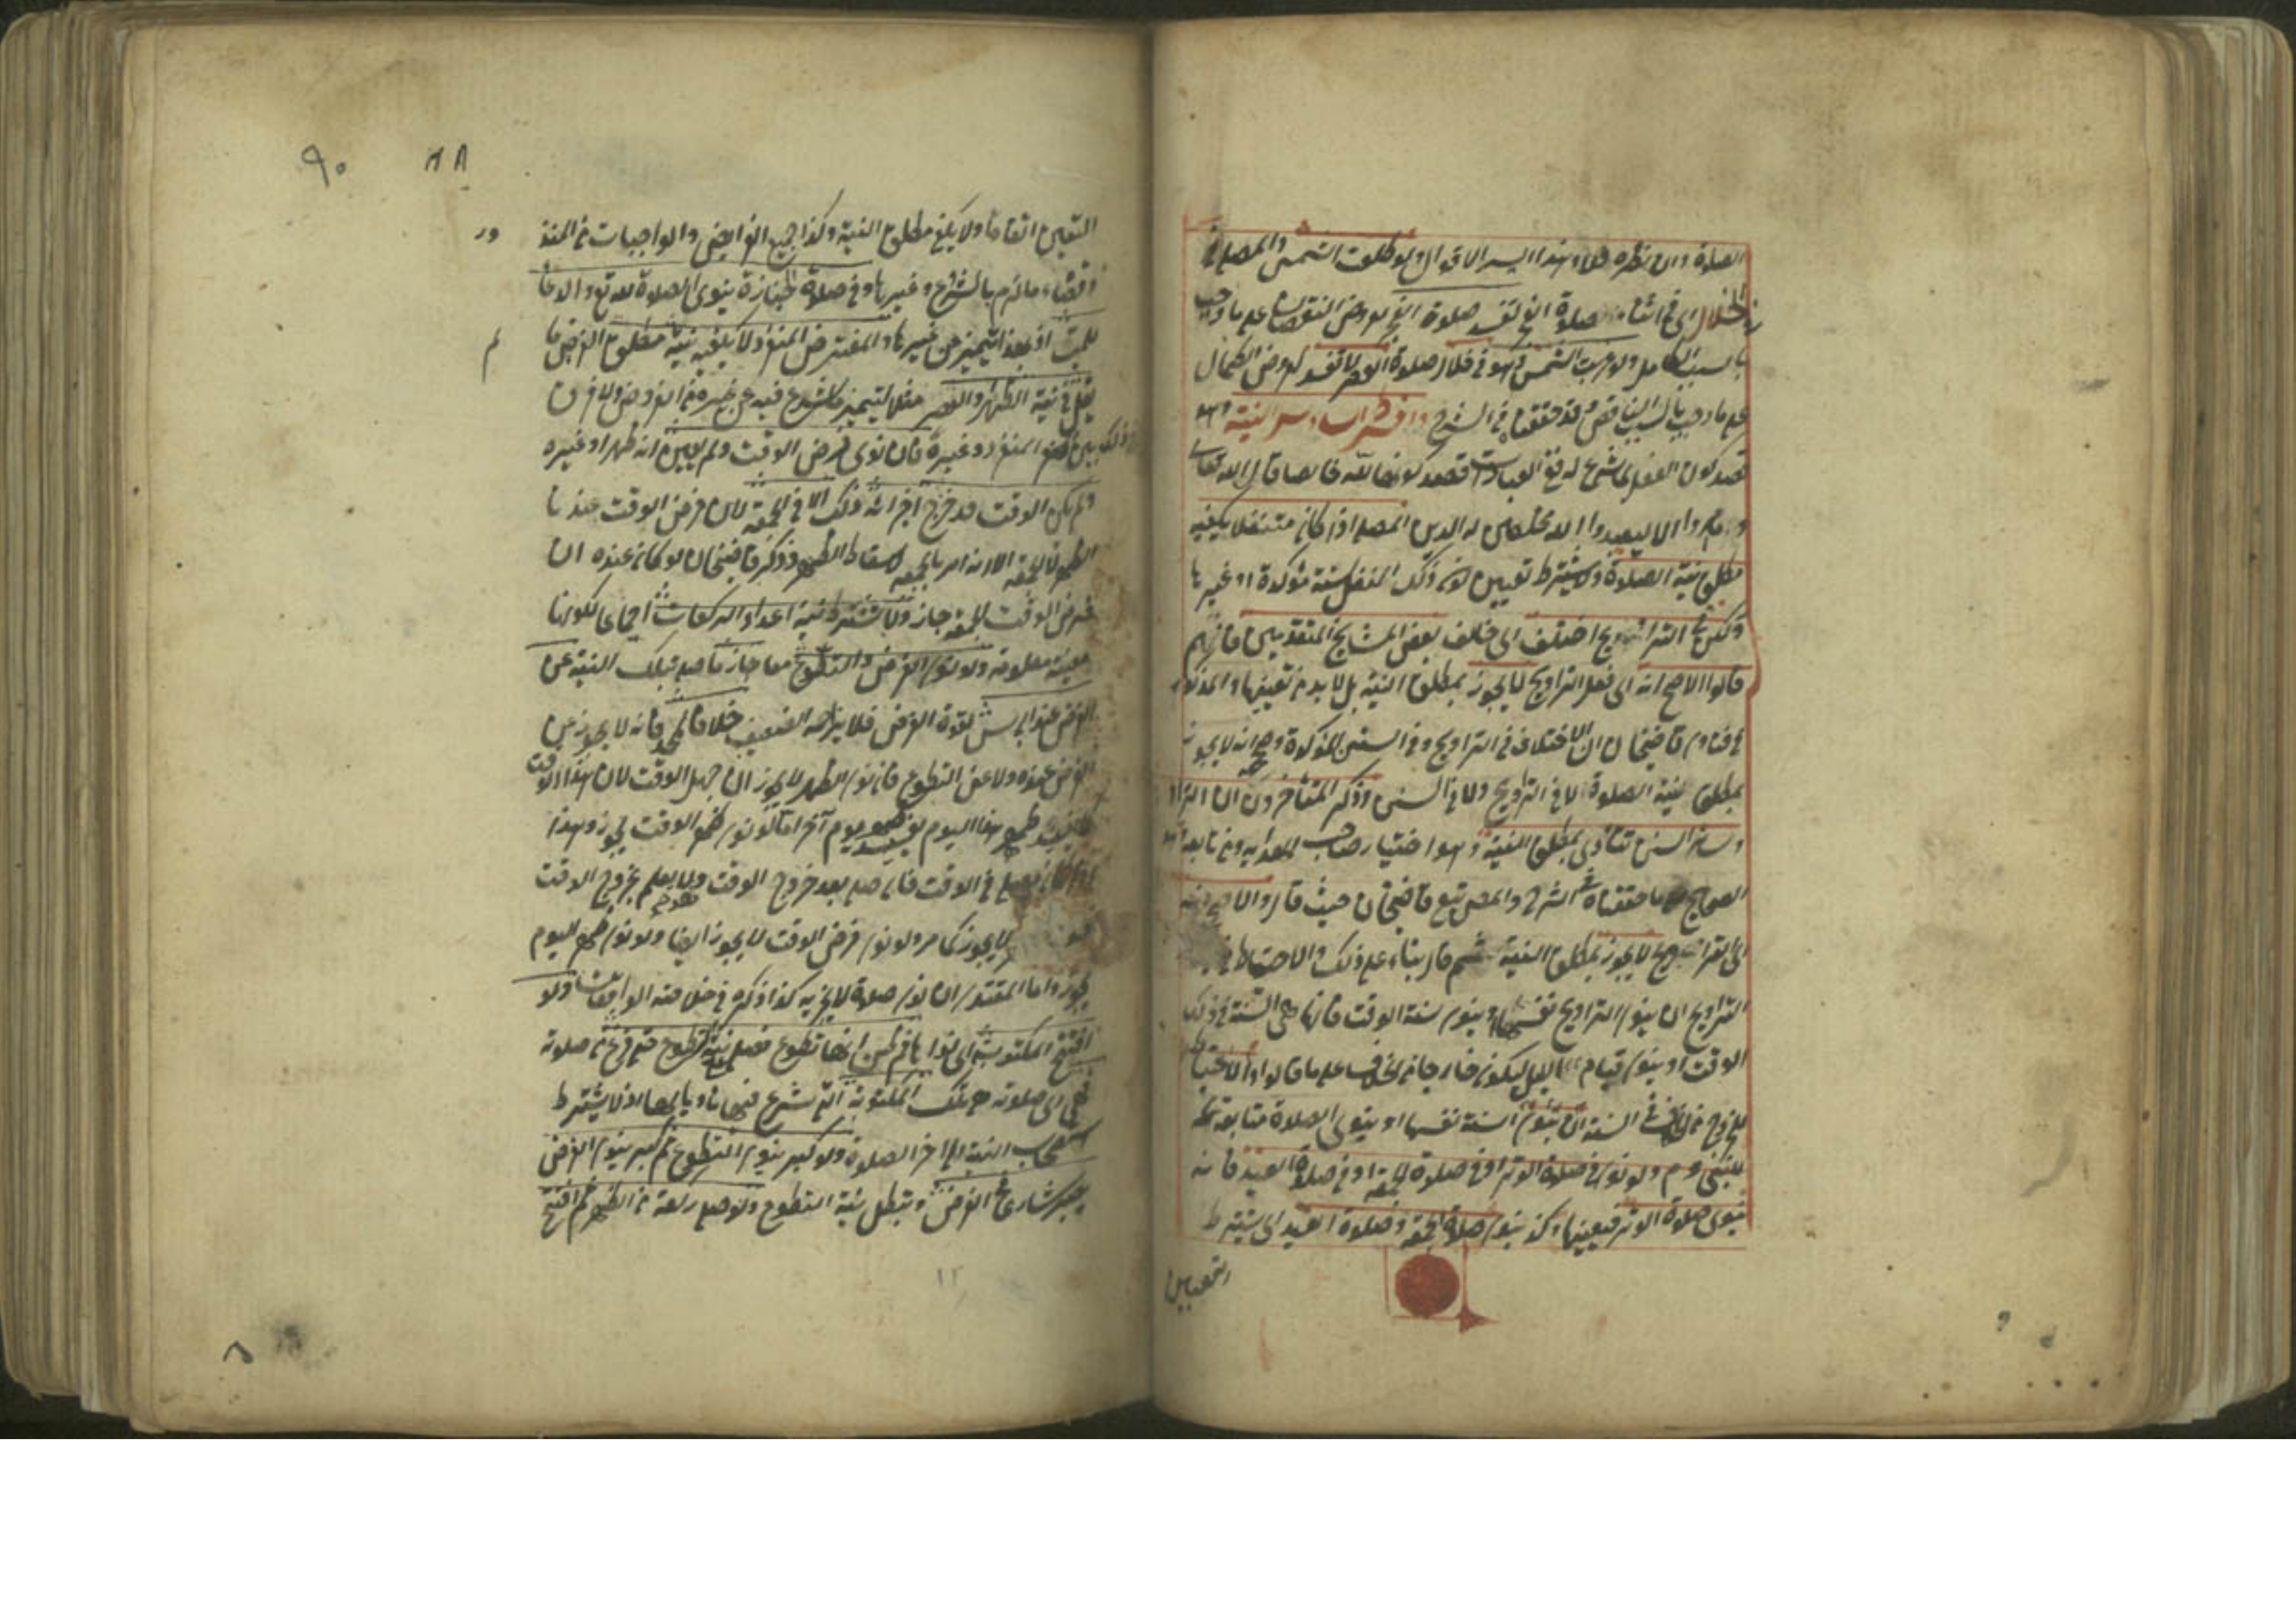 الصلاة وان نظره فلا وهذا ايسر الاقوال ولو طلعت الشمس والمصلي في
خلال اى في اثناء صلوة الفجر تفسد صلوة الفجر لعروض النقصان على ما وجب
بالسبب الكامل ولو غربت الشمس وهو في خلال صلوة العصر لا تفسد لعروض الكمال
على ما وجب بالسبب الناقص وقد حققناه في الشرح والشرط السادس النية وهو
قصد كون الفعل لما شرع له في العبادات قصد كونها لله خالصا قال الله تعالى
وما امروا الا ليعبدوا الله مخلصين له الدين المصلى اذا كان متنفلا يكفيه
مطلق نية الصلوة ولا يشترط تعيين كون ذلك النفل سنة مؤكدة او غيرها
ولكن في التراويح اختلف اى خالف بعض المشايخ المتقدمين فانهم
قالوا الاصح انه اى فعل التراويح لا يجوز بمطلق النية بل لا بد من تعيينها والمذكور
في فتاوى قاضيخان ان الاختلاف في التراويح وفي السنن المؤكدة وصحح انه لا يجوز
بمطلق نية الصلوة لا في التراويح ولا في السنن وذكر المتأخرون ان التراويح
وسائر السنن تتأدى بمطلق النية وهو اختيار صاحب الهداية ومن تابعه وهو
الصحيح كما حققناه في الشرح والمصنف تبع قاضيخان حيث قال والاصح انه
اى التراويح لا يجوز بمطلق النية ثم قال بناء على ذلك والاحتياط في
التراويح ان ينوى التراويح نفسها او ينوى سنة الوقت فانها هي السنة في ذلك
الوقت او ينوى قيام الليل ليكون خارجا من الخلاف على ما قالوا والاحتياط
للخروج من الخلاف في السنة ان ينوى السنة نفسها او ينوى الصلاة متابعة
للنبى عم ولو نوى في صلاة الوتر او في صلوة الجمعة او في صلاة العيد فانه
ينوى صلاة الوتر فيعينها وكذا ينوى صلاة الجمعة وصلوة العيد اى يشترط
التعيين
٩٠
٨٨
التعيين اتفاقا ولا يكفي مطلق النية وكذا جميع الفرائض والواجبات من المنذور
وقضاء ما لزم بالشروع وغيرها وفي صلاة الجنازة ينوى الصلاة لله تع والدعا
للميت اذ بهذا تتميز عن غيرها والمفترض المنفرد لا يكفيه نية مطلق الفرض ما
لم
يقل في نية الظهر او العصر مثلا لتتميز ما شرع فيه عن غيره من الفروض ولا فرق
في ذلك بين المنفرد وغيره فان نوى فرض الوقت ولم يعين انه ظهر او غيره
ولم يكن الوقت قد خرج اجزائه ذلك الا في الجمعة لان فرض الوقت عندنا
الظهر لا الجمعة الا انه امر بالجمعة لاسقاط الظهر وذكر قاضيخان لو كان عنده ان
فرض الوقت الجمعة جاز ولا يشترط نية اعداد الركعات اجماعا لكونها
معينة معلومة ولو نوى الفرض والتطوع معا جاز ما صلى بتلك النية عن
الفرض عند ابى يوسف لقوة الفرض فلا يزاحمه الضعيف خلافا لمحمد فانه لا يجوز عن
الفرض عنده ولا عن التطوع فان نوى الظهر لا يجوز ان جهل الوقت لان هذا الوقت
كما يقبل ظهر هذا اليوم يقبل ظهر يوم آخر اما لو نوى ظهر الوقت يجوز وهذا
اذا كان يصلى في الوقت فان صلى بعد خروج الوقت ولا يعلم بخروج الوقت
لا يجوز كما مر ولو نوى فرض الوقت لا يجوز ايضا ولو نوى ظهر اليوم
يجوز واما المقتدى ان نوى صلاة لا يجزيه كذا ذكره في خلاصة الواقعات ولو
افتتح المكتوبة اى نواها ثم ظن انها تطوع فصلى بنية التطوع حتى فرغ من صلوته
فهى اى صلوته هى تلك المكتوبة التى شرع فيها ناويا لها اذ لا يشترط
استصحاب النية الى آخر الصلوة ولو كبر ينوى التطوع ثم كبر ينوى الفرض
يصير شارعا في الفرض وتبطل نية التطوع ولو صلى ركعة من الظهر ثم افتتح